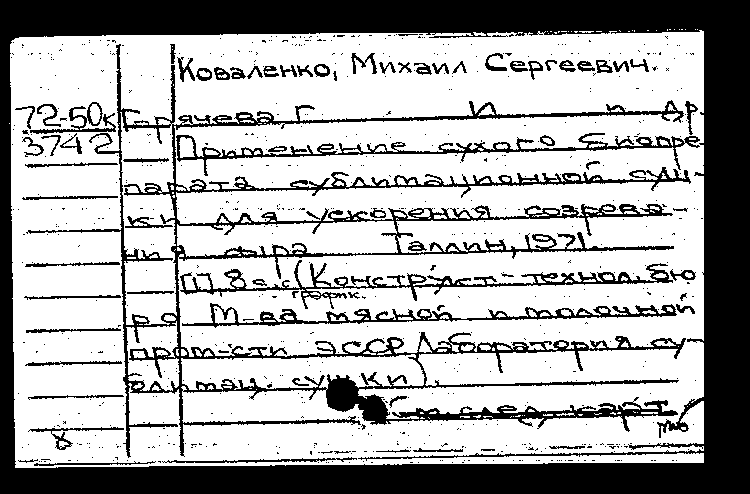 Коваленко, Михаил Сергеевич.
72-50к Горячева, Г И и др.
3742 Применение сухого биопре-
парата сублимационной суш-
ки для ускорения созрева-
ния сыра Таллин, 1971.
[1], 8 с. (Конструкт.-технол. бю-
график.
ро М-ва мясной и молочной
пром-сти ЭССР. Лаборатория су-
блимац. сушки).
См. след. карт.
8